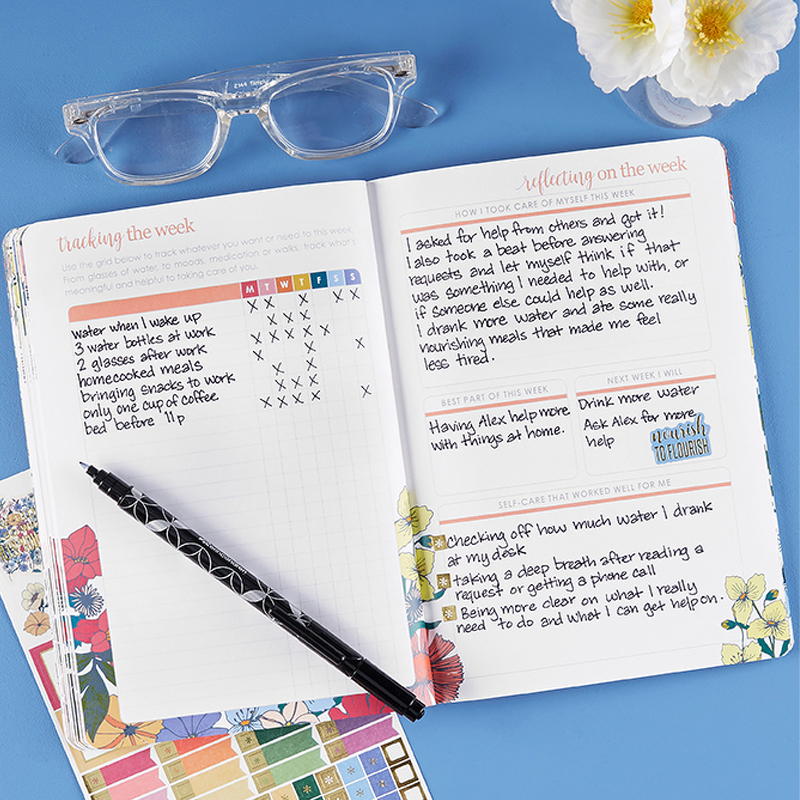 tracking the week
Use the grid below to track whatever you want or need to this week.
From glasses of water, to moods, medication or walks, track what's
meaningful and helpful to taking care of you.
M T W T F S S
Water when I wake up
3 water bottles at work
2 glasses after work
homecooked meals
bringing snacks to work
only one cup of coffee
bed before 11p
reflecting on the week
HOW I TOOK CARE OF MYSELF THIS WEEK
I asked for help from others and got it!
I also took a beat before answering
requests and let myself think if that
was something I needed to help with, or
if someone else could help as well.
I drank more water and ate some really
nourishing meals that made me feel
less tired.
BEST PART OF THIS WEEK
Having Alex help more
with things at home.
NEXT WEEK I WILL
Drink more water
Ask Alex for more
help
nourish
TO FLOURISH
SELF-CARE THAT WORKED WELL FOR ME
Checking off how much water I drank
at my desk
taking a deep breath after reading a
request or getting a phone call
Being more clear on what I really
need to do and what I can get help on.